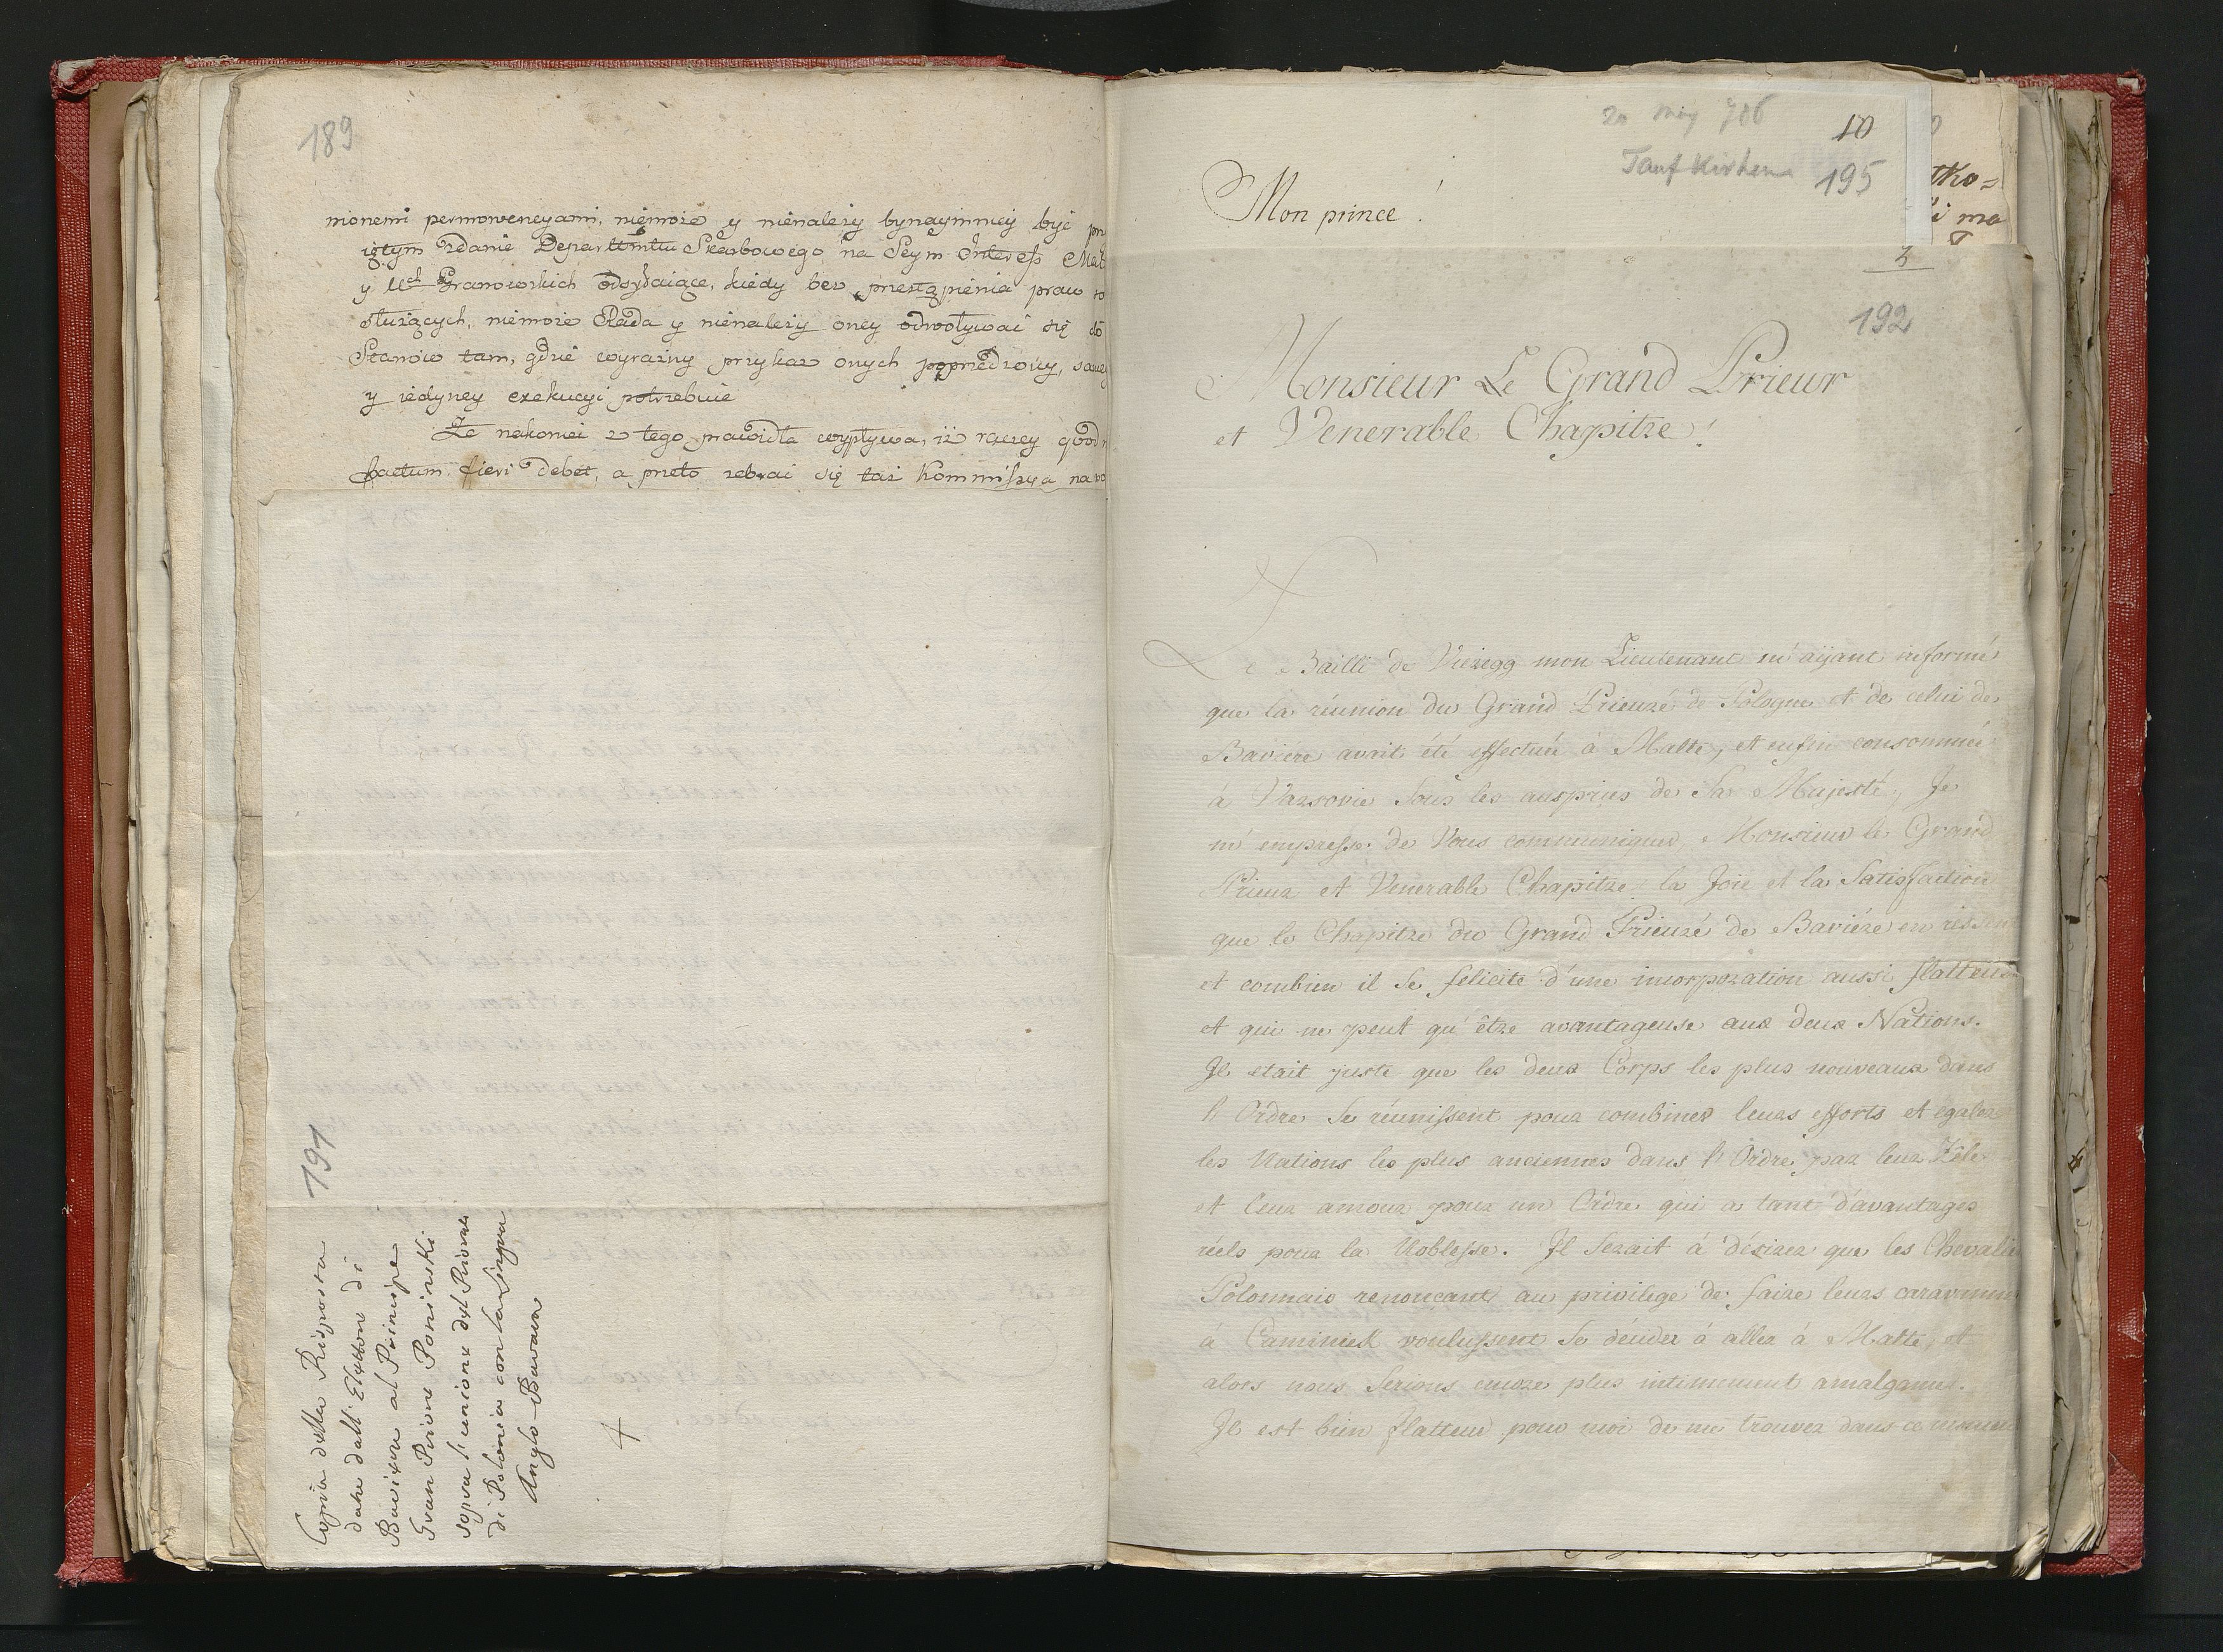 189
nionemi permowencyami, niemoże y nienależy bynaymniey być
zdanie Departmtu Skarbowego na Seym Interess
y Uch Granowskich odsyłaiące, kiedy bez przestąpienia praw
służących, niemoże Rada y nienależy oney odwoływać się do
Stanów tam, gdzie wyraźny przykaz onych poprzedzony,
y iedyney exekucyi potrzebuie
Że nakoniec z tego prawidła wypływa, iż rzeczy quod
factum fieri debet, a przeto zebrać się taż Kommissya na
191
Copia della Risposta
data dall' Elettore di
Baviera al Principe
Gran Priore Poninski
sopra l'unione del Priorato
di Polonia con la Lingua
Anglo-Bavara
4
20 may 786
Taufkirhen
10
195
Mon prince!
tko=
ma
2
192
Monsieur Le Grand Prieur
et Venerable Chapitre!
Le Bailli de Vieregg mon Lieutenant m'aÿant informé
que la réunion du Grand Prieuré de Pologne et de celui de
Baviére avait été effectuée à Malte, et enfin consommée
à Varsovie sous les auspices de Sa Majesté, Je
m'empresse de Vous communiquer, Monsieur le Grand
Prieur et Venerable Chapitre la Joie et la Satisfaction
que le Chapitre du Grand Prieuré de Baviére en
et combien il se felicite d'une incorporation aussi flatteuse
et qui ne peut qu'être avantageuse aux deux Nations.
Il etait juste que les deux Corps les plus nouveaux dans
l'Ordre se réunissent pour combiner leurs efforts et egaler
les Nations les plus anciennes dans l'Ordre, par leur Zêle
et leur amour pour un Ordre qui a tant d'avantages
réels pour la Noblesse. Il serait à désirer que les Chevalie
Polonnais renonçant au privilege de faire leurs caravannes
à Caminiek voulussent se décider à aller à Malte, et
alors nous serions encore plus intimement amalgamés.
Il est bien flatteur pour moi de me trouver dans ce